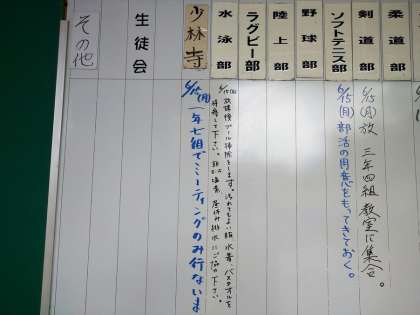 柔道部
剣道部
6/15(月)放 三年四組教室に集合。
ソフトテニス部
6/15(月)部活の用意をもってきておく。
野球部
陸上部
ラグビー部
水泳部
放課後プール掃除をします。汚れてもよい服、水着、バスタオルを
持参して下さい。
昼休み排水にご協力下さい。
少林寺
6/15(月)
一年七組でミーティングのみ行ないま
生徒会
その他